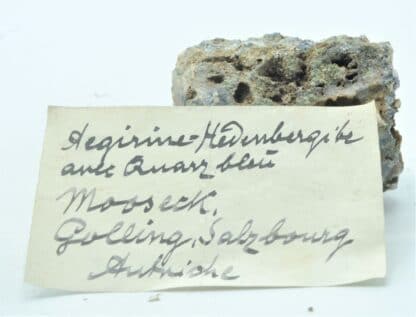 Aegirine-Hédenbergite
avec Quarz bleu
Mooseck,
Golling, Salzbourg
Autriche